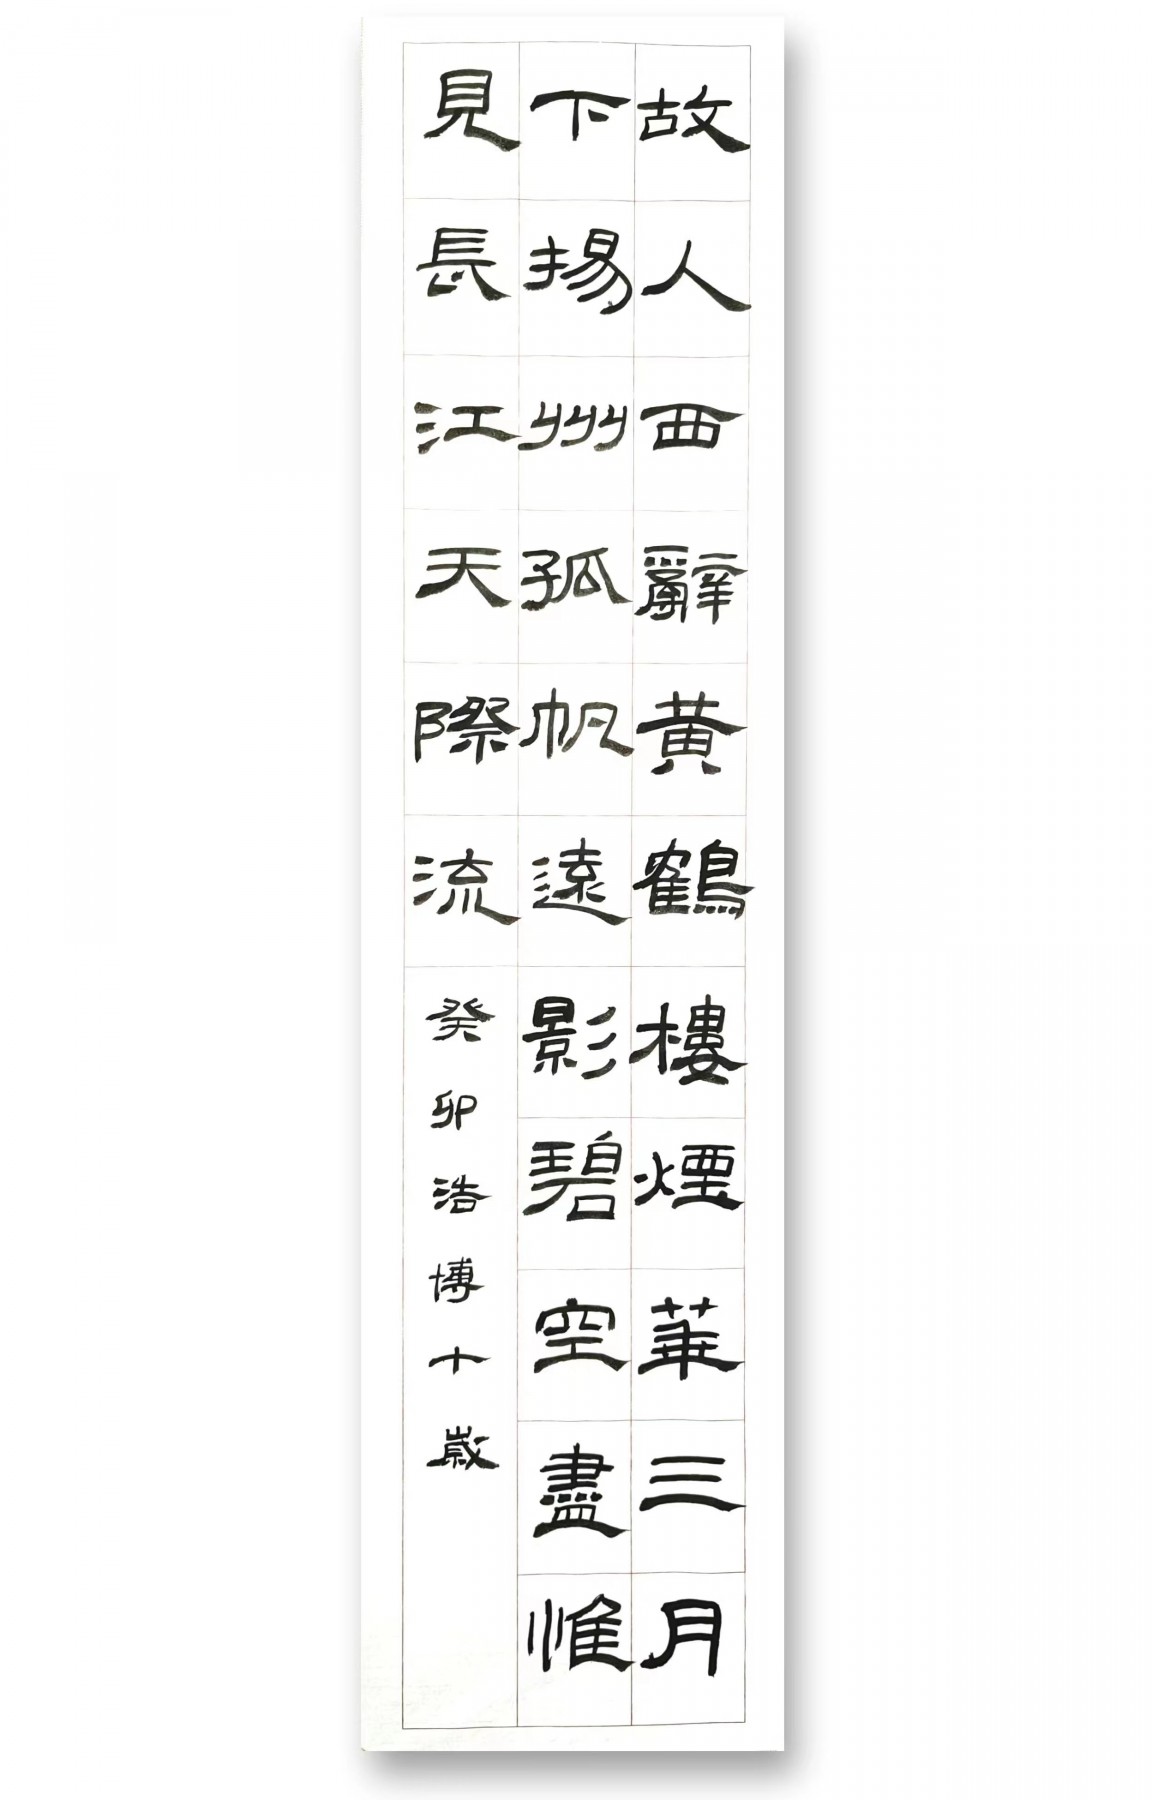 故人西辭黃鶴樓煙華三月
下揚州孤帆遠影碧空盡惟
見長江天際流
癸卯浩博十歲